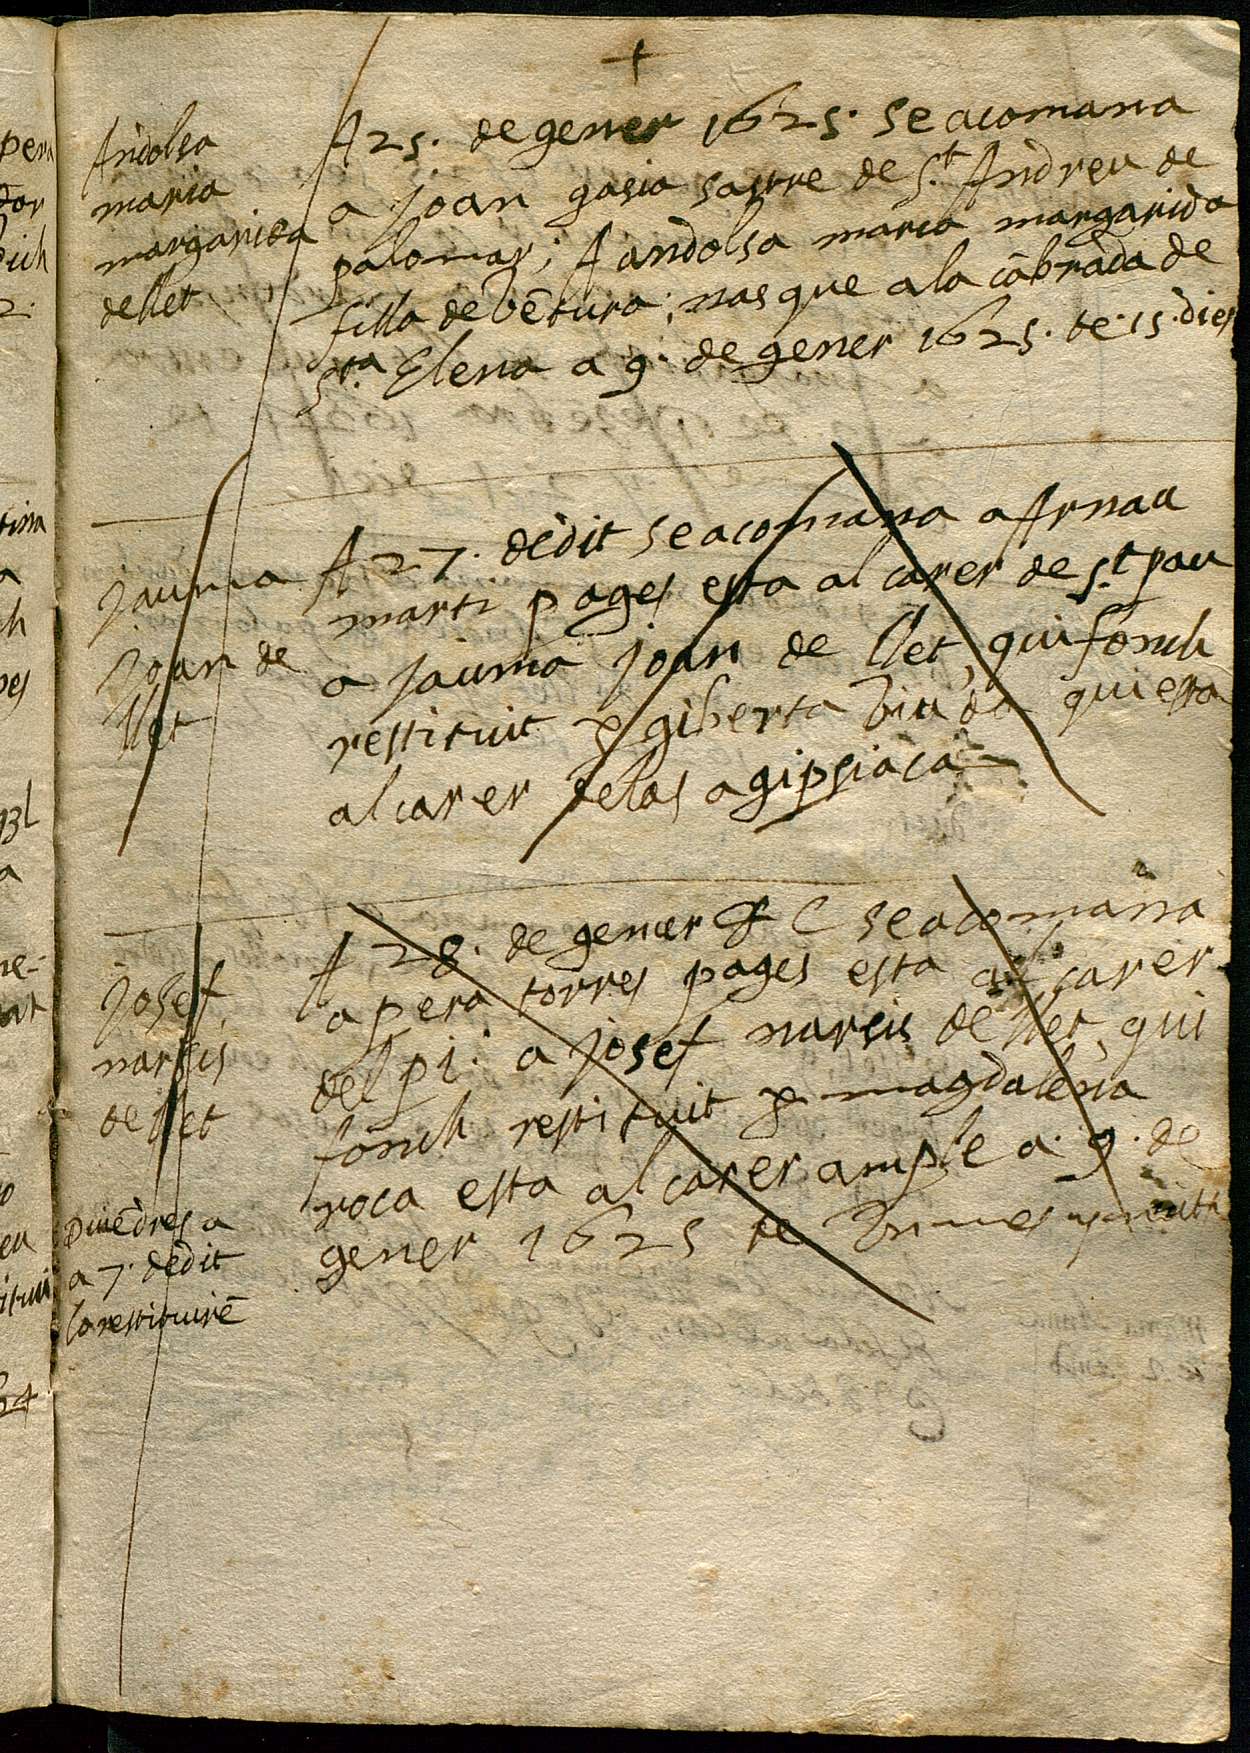 +
Andolsa
maria
margarida
dellet
A 25. de gener 1625. se acomana
a joan gasia sastre de St. Andreu de
palomar; A andolsa maria margarida
filla de vētura; nasque a la cābrada de
Sta. Elena a 9. de gener 1625. te. 15. dies
Jauma
Joan de
llet
A 27. dedit se acomana a Arnau
marti pages esta al carer de St. pau
a Jauma Joan de llet, qui fonch
restituit p giberta viuda qui esta
al carer de las agipsiaca
Josef
narsis
de llet
A 28. de gener se acomana
a pera torres pages esta al carer
del pi. a josef narsis de llet, qui
fonch restituit p magdalena
roca esta al carer ample a. 9. de
gener 1625 te un mes y
a 7. dedit
lo restituirē